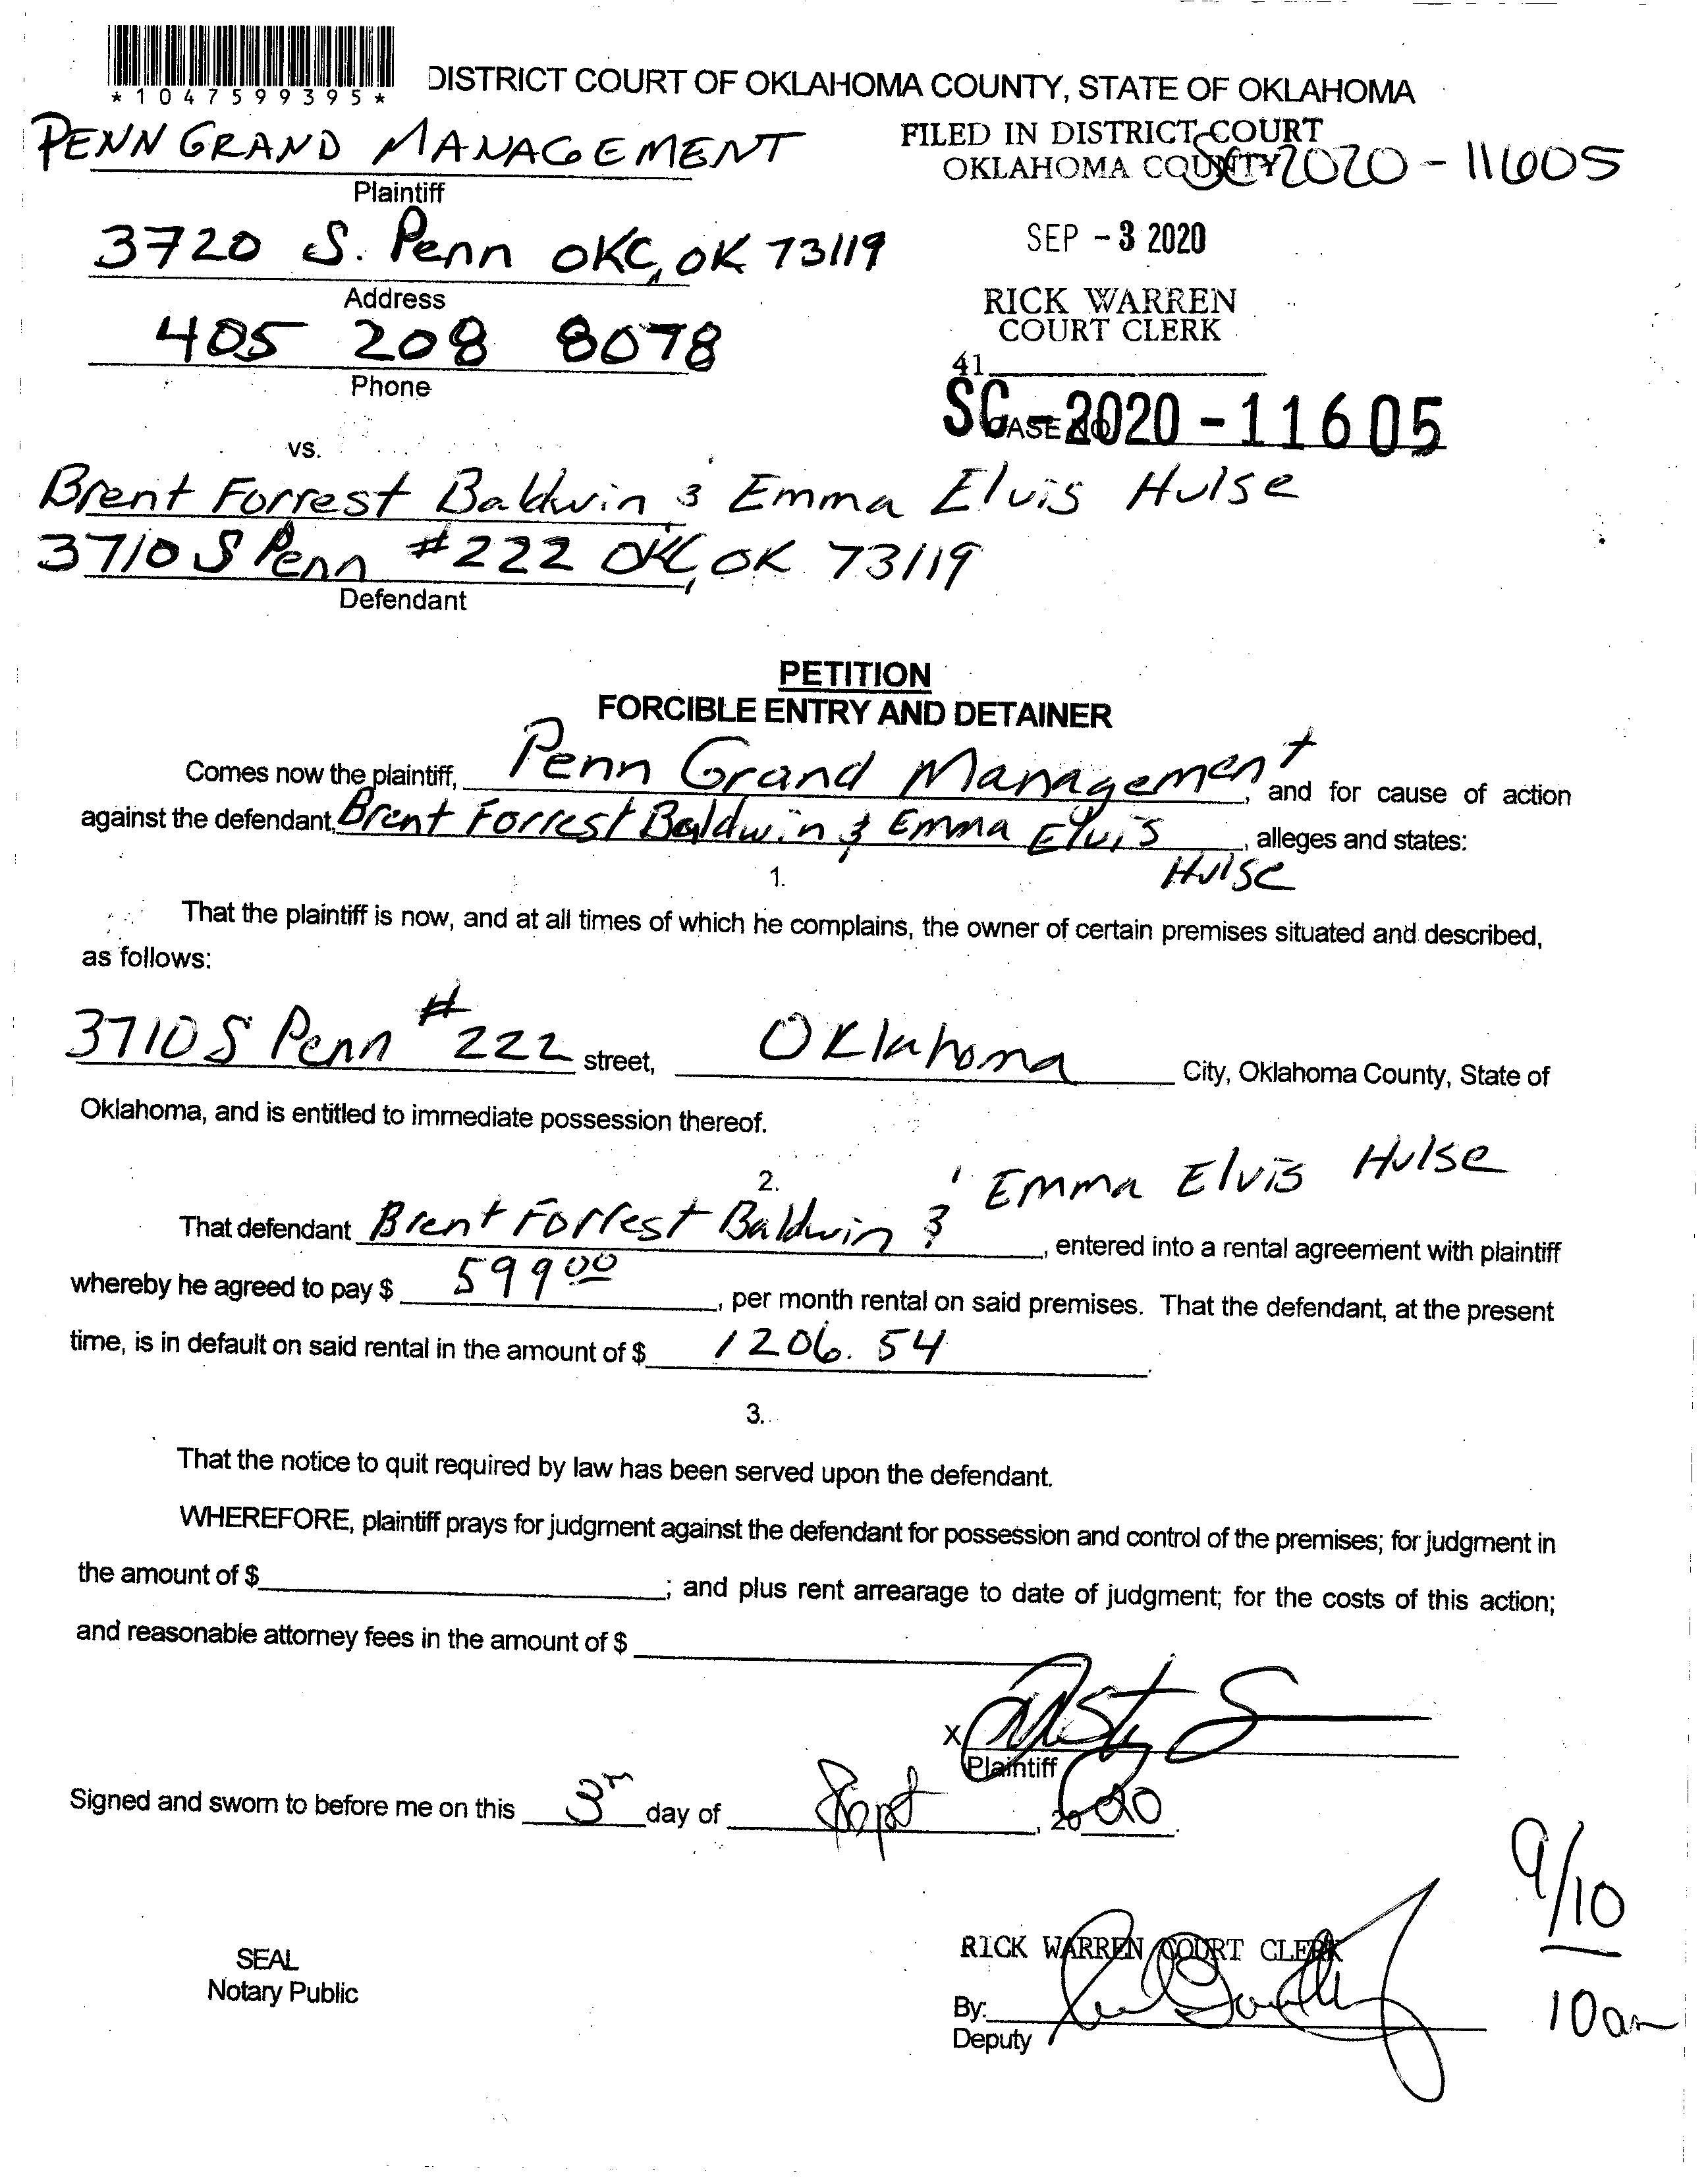 *1047599395*
DISTRICT COURT OF OKLAHOMA COUNTY, STATE OF OKLAHOMA
PENN GRAND MANAGEMENT
Plaintiff
FILED IN DISTRICT COURT
OKLAHOMA COUNTY
SC 2020-11605
3720 S. Penn OKC, OK 73119
Address
SEP -3 2020
405 208 8078
Phone
RICK WARREN
COURT CLERK
41
CASE NO
SC-2020-11605
vs.
Brent Forrest Baldwin & Emma Elvis Hulse
3710 S Penn #222 OKC, OK 73119
Defendant
PETITION
FORCIBLE ENTRY AND DETAINER
Comes now the plaintiff, Penn Grand Management, and for cause of action
against the defendant, Brent Forrest Baldwin & Emma Elvis Hulse, alleges and states:
1.
That the plaintiff is now, and at all times of which he complains, the owner of certain premises situated and described,
as follows:
3710 S Penn #222 street, Oklahoma City, Oklahoma County, State of
Oklahoma, and is entitled to immediate possession thereof.
2.
That defendant Brent Forrest Baldwin & Emma Elvis Hulse, entered into a rental agreement with plaintiff
whereby he agreed to pay $ 599 00, per month rental on said premises. That the defendant, at the present
time, is in default on said rental in the amount of $ 1206.54.
3.
That the notice to quit required by law has been served upon the defendant.
WHEREFORE, plaintiff prays for judgment against the defendant for possession and control of the premises; for judgment in
the amount of $ ; and plus rent arrearage to date of judgment; for the costs of this action;
and reasonable attorney fees in the amount of $
X
Plaintiff
Signed and sworn to before me on this 3rd day of Sept, 2020.
9/10
10am
SEAL
Notary Public
RICK WARREN COURT CLERK
By:
Deputy